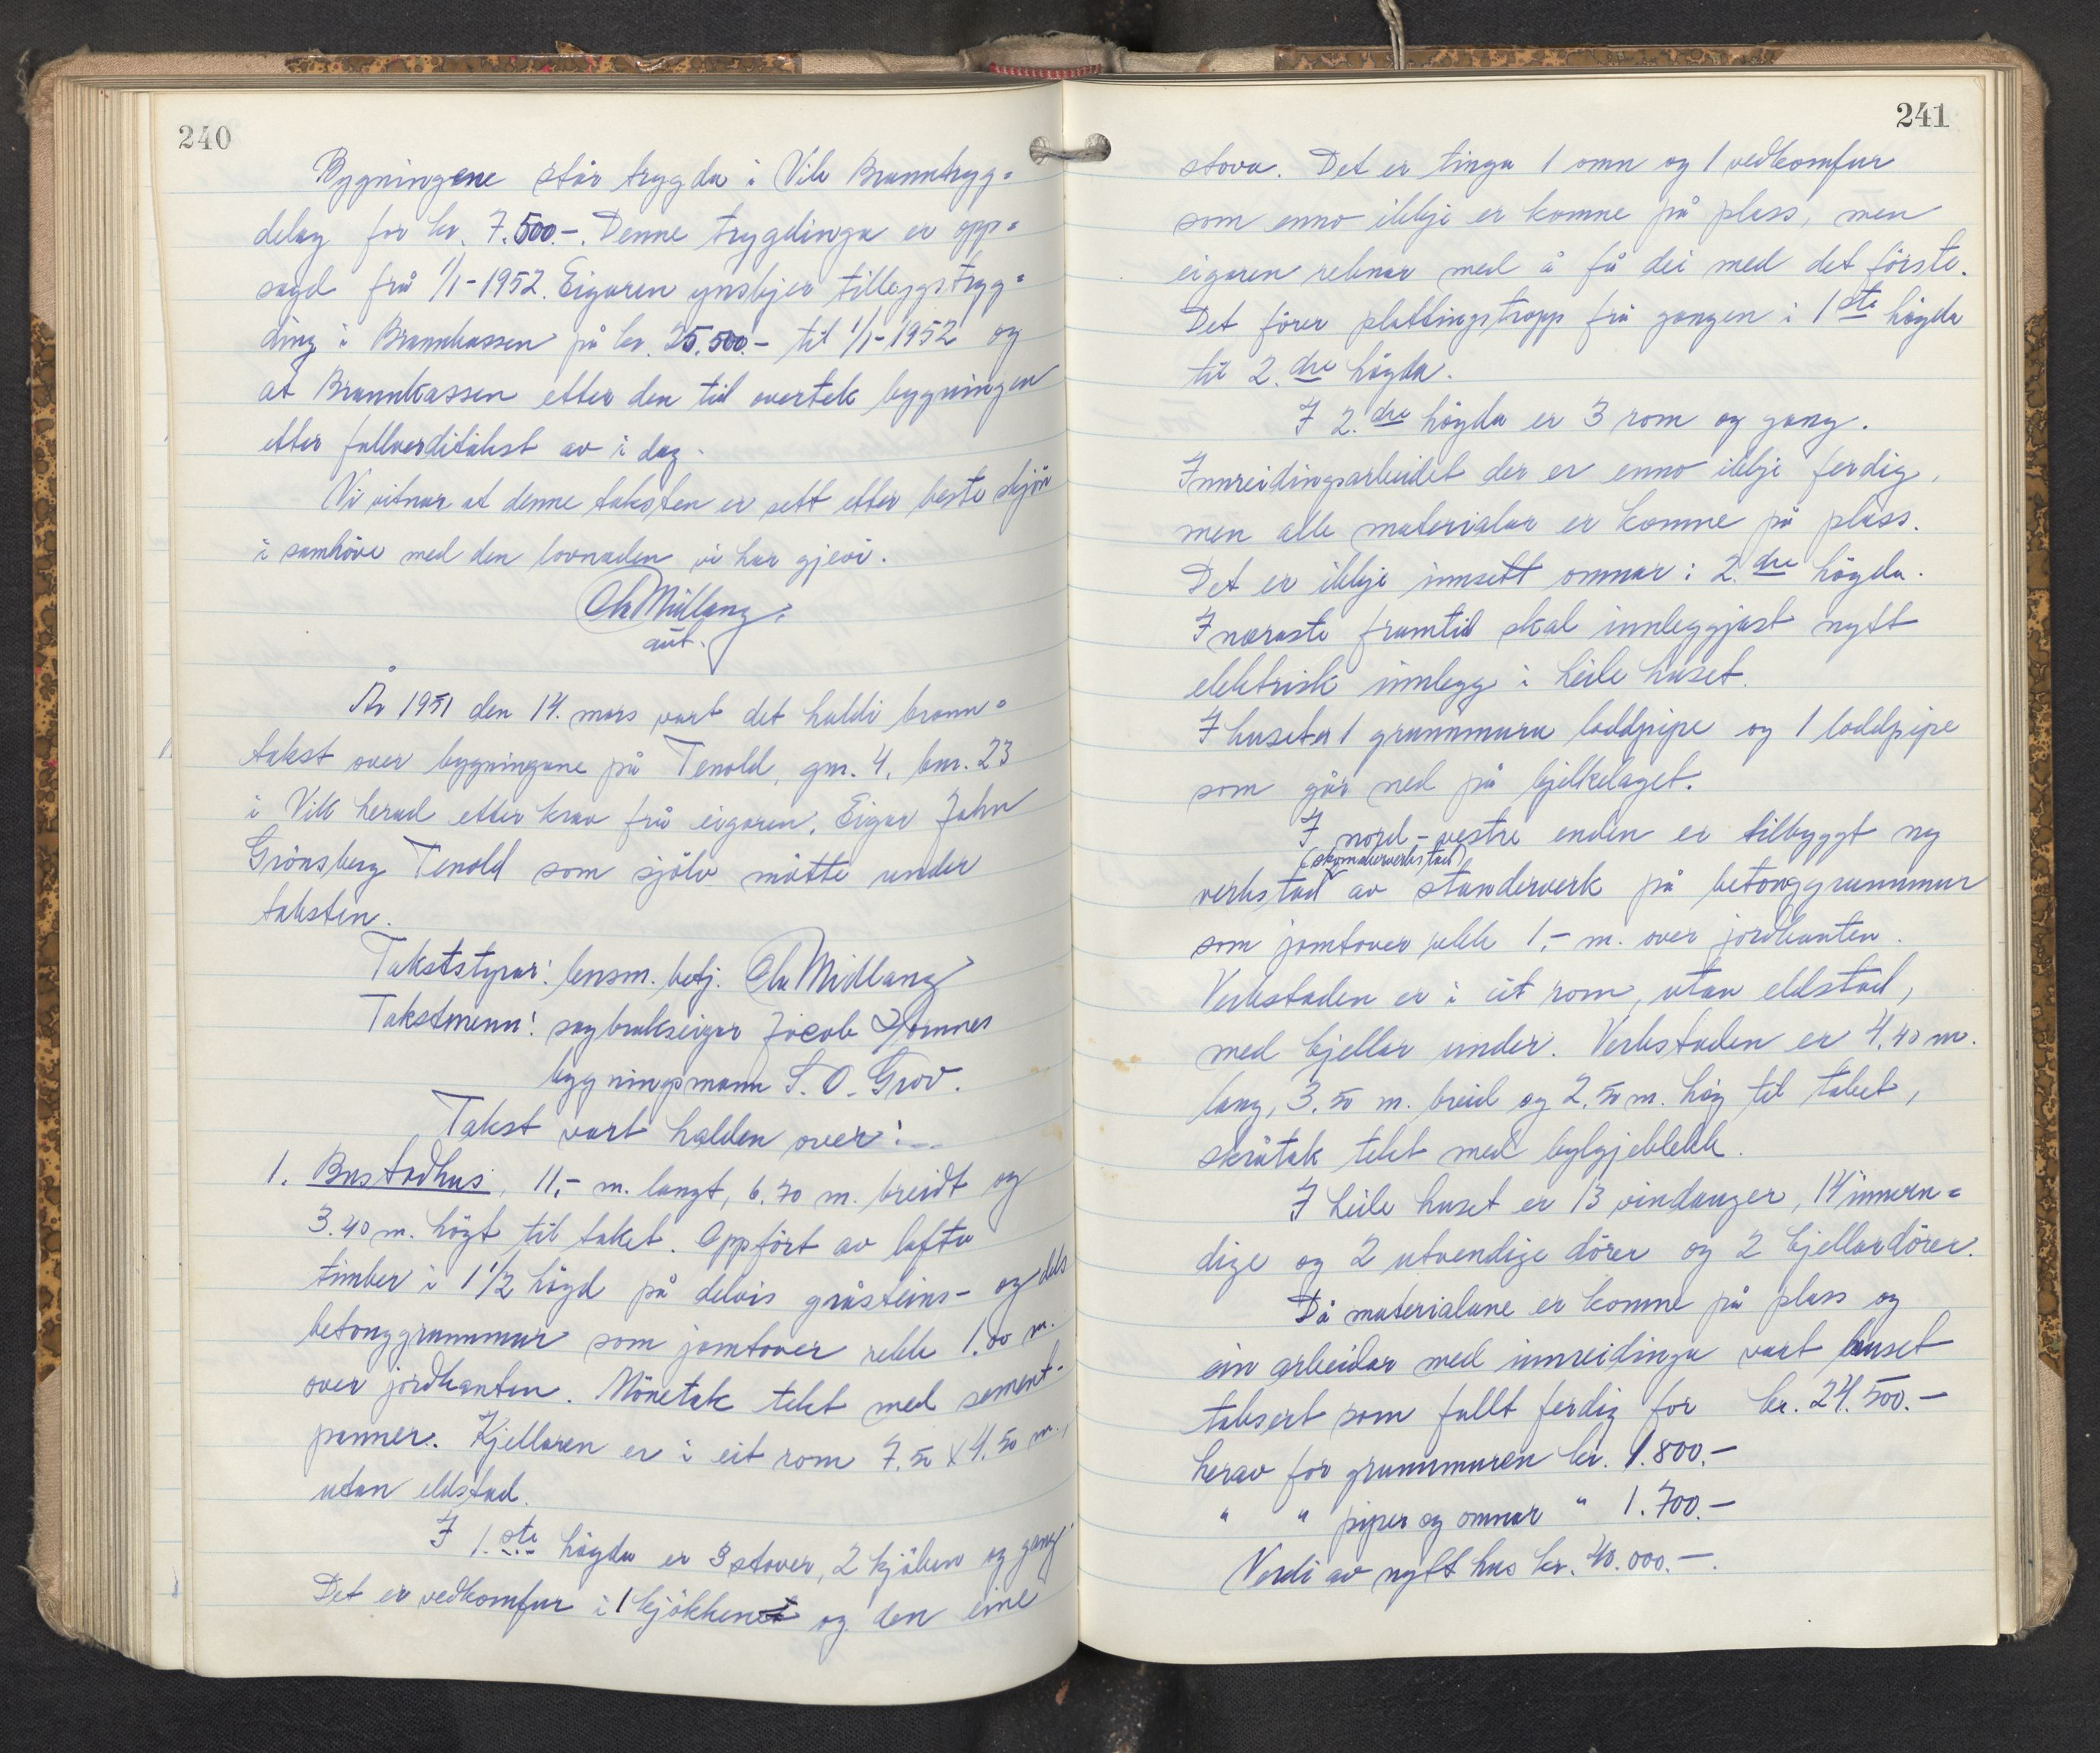 240
Bygningene står trygda i Vik Branntryg=
delag for kr. 7.500.-. Denne trygdinga er opp=
sagd frå 1/1-1952. Eigaren ynskjer tilleggstryg=
ding i Brannkassen på kr. 25.500.- til 1/1-1952 og
at Brannkassen etter den tid overtek bygningen
etter fullverditakst av i dag.
Vi vitnar at denne taksten er sett etter beste skjön
i samhöve med den lovnaden vi har gjevi.
Ola Midlang.
aut.
År 1951 den 14. mars vart det haldi brann=
takst over bygningane på Tenold, gnr. 4, bnr. 23
i Vik herad etter krav frå eigaren. Eigar John
Grönsberg Tenold som sjölv mötte under
taksten.
Takststyrar: lensm. betj. Ola Midlang
Takstmenn: sagbrukseigar Jacob Hommes
bygningsmann S. O. Grov.
Takst vart halden over:
1. Bustadhus, 11,- m. langt, 6.70 m. breidt og
3.40 m. högt til taket. Oppfört av lafta
timber i 1 1/2 högd på delvis gråsteins- og dels
betonggrunnmur som jamtover rekk 1.00 m.
over jordkanten. Mönetak tekt med sement-
panner. Kjellaren er i eit rom 7.50 x 4.50 m.,
utan eldstad.
I 1.ste högda er 3 stover, 2 kjöken og gang.
Det er vedkomfur i 1 kjökkenet og den eine
241
stova. Det er tinga 1 omn og 1 vedkomfur
som enno ikkje er komne på plass, men
eigaren reknar med å få dei med det förste.
Det förer plattingstropp frå gangen i 1ste högda
til 2.dre högda.
I 2.dre högda er 3 rom og gang.
Innreidingsarbeidet der er enno ikkje ferdig,
men alle materialar er komne på plass.
Det er ikkje innsett omnar i 2.dre högda.
I næraste framtid skal innleggjast nytt
elektrisk innlegg i heile huset.
I huset er 1 grunnmura loddpipe og 1 loddpipe
som går ned på bjelkelaget.
I nord-vestre enden er tilbyggt ny
(skomakerverkstad)
verkstad av standerverk på betonggrunnmur
som jamtover rekk 1,- m. over jordkanten.
Verkstaden er i eit rom, utan eldstad,
med kjellar under. Verkstaden er 4,40 m.
lang, 3.50 m. breid og 2.50 m. hög til taket,
skråtak tekt med bylgjeblekk.
I heile huset er 13 vindauger, 14 innven=
dige og 2 utvendige dörer og 2 kjellardörer.
Då materialane er komne på plass og
ein arbeidar med innreidinga vart huset
taksert som fullt ferdig for kr. 24.500.-
herav for grunnmuren kr. 1.800.-
" " piper og omnar " 1.700.-
Verdi av nytt hus kr. 40.000.-.